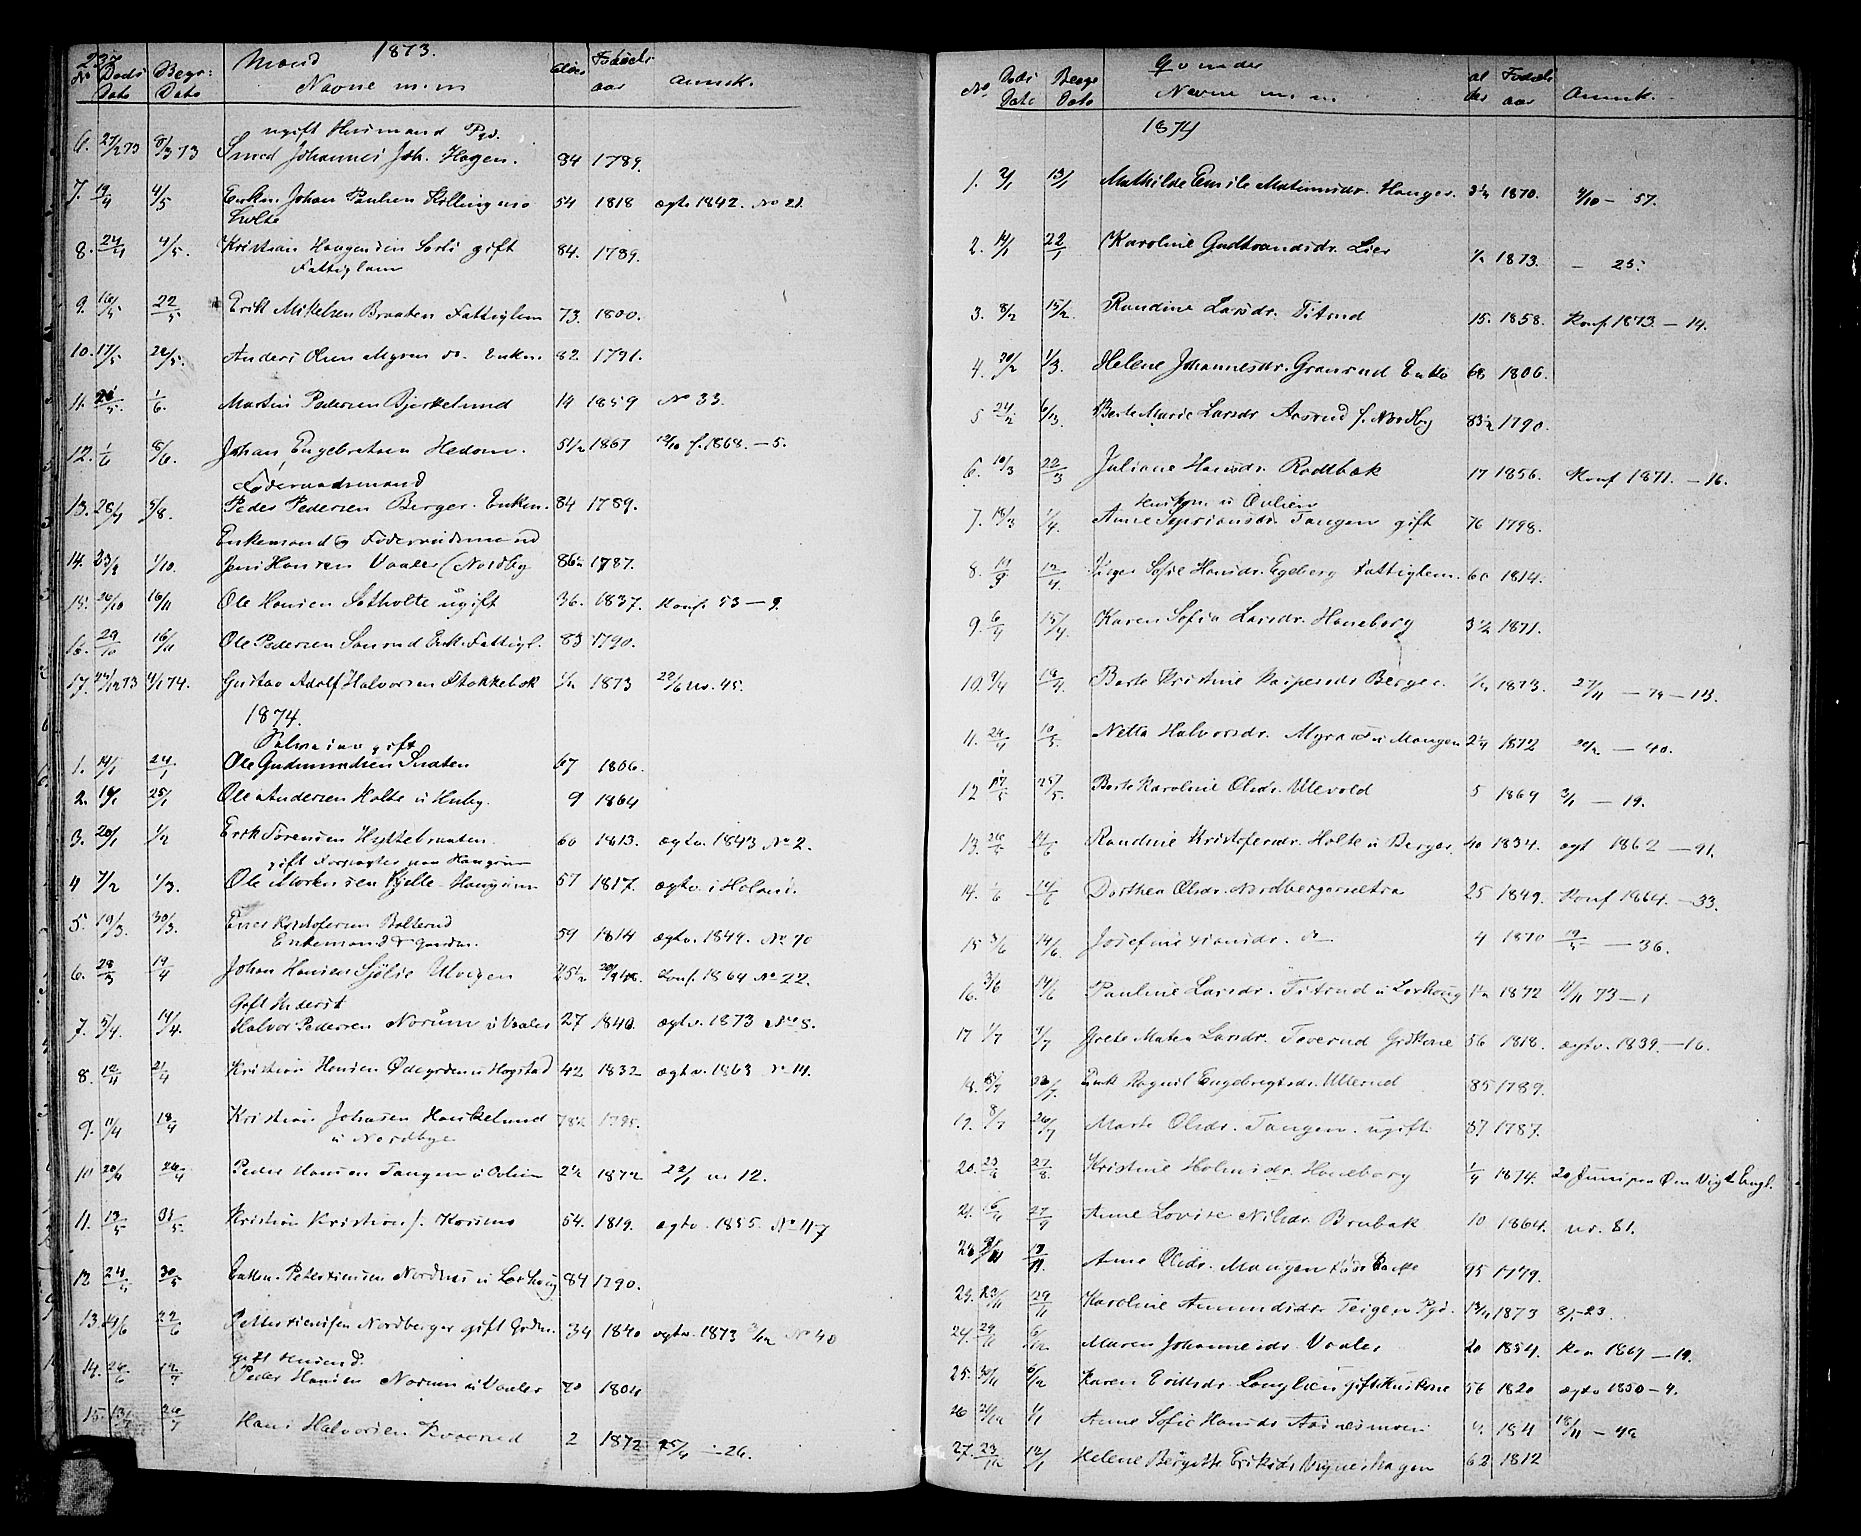 237
1873.
No Døds Dato Begr: Dato Mænd Navne m.m Alder Fødsels aar Anmk.
ugift Husmand Pgd.
6. 27/2 73 8/3 73 Smed Johannes Joh. Hagen. 84 1789.
7. 19/4 4/5 Enkm. Johan Paulsen 54 1818 ægtv 1842. No 21.
Holte
8. 24/4 4/5. Kristian Haugensen Sorli gift 84. 1789.
Fattiglem
9. 16/5 22/5 Erik Mikelsen Braaten Fattiglem 73. 1800.
10. 17/5 22/5. Anders Olsen Myren Enkm. 82 1791.
11. 26/5. 1/6. Martin Pedersen Bjerkelund 14 1859 No 33.
12. 1/6 8/6. Johan Engebretsen Hedom. 5 1/2 1867 12/10 f. 1868. — 5.
Føderaadsmand
13. 28/7 5/8. Peder Pedersen Berger. Enkem. 84 1789.
Enkemand og Føderaadsmand
14. 1/10. Jens Hansen Vaaler (Nordby 86 1/2 1787.
15. 26/10 16/11 Ole Hansen Sotholte ugift 36. 1837. Konf. 53 — 9.
16. 29/10 16/11 Ole Pedersen Enk. Fattigl. 83 1790.
17. 73 4/1 74. Gustav Adolf Halvorsen Stokkebæk 1/2 1873 22/6 no. 45.
1874.
gift
1. 14/1 24/1 Ole Gudmundsen Snaten 67 1806.
2. 25/1 Ole Andersen Holte u Huby. 9 1864
3. 20/1 1/2 Erik Sørensen Hyttebraaten. 60 1813. ægtv. 1843 No 2.
gift Forpagter paa Haugrim
4 7/2 1/3. Ole Mortensen Kjelle Haugrim 57 1817. ægtv. i Holand.
5. 19/3. 30/3. Kristofersen Bolterud 59 1814 ægtv. 1849. No 70
Enkemand & Gaardm.
6. 29/3 19/4 Johan Hansen Sjølie Ulvigen 25 1/2 Konf. 1864 No 22.
Gift Inderst
7. 5/4. 19/4. Halvor Pedersen Norum u Vaaler 27 1846 ægtv. 1873 No 8.
8. 12/4 21/4 Kristian Hansen Ødegården u Hogstad 42 1832 ægtv. 1863 No 14.
9. 11/4 19/4 Kristian Johasen Haukelund 78 1/2 1795.
u Nordbye
10 20/4 26/4 Peder Hansen Tangen u Ovlien 2 1/2 1872 22/1 no 12.
11. 13/5 31/5. Kristian Kristians f. Kosmo 54. 1819. ægtv. 1855. No 47
12 24/5 30/5 Enkm. Peter Nordnes u Lerhaug 84 1790.
13. 14/6 22/6 Petter Nordberger gift Grdm. 34 1840 ægtv. 1873 3/12 No 40
gift
14. 26/6 12/7 Peder Hansen Norum u Vaaler 70 1804
15. 13/7 26/7 Hans Halvorsen Kvaerud 2 1872 25/4 — 26.
No Døds Date Begr Dato Qvinder Navne m. m alder Fødsels aar Anmk.
1874
1. 2/1 13/1 Mathilde Emilie Matinusdr. Hanger. 3 1/2 1870. 9/10 — 57.
2. 14/1 22/1 Karoline Gudbrandsdr. Lier 1/2 1873. — 25.
3. 8/2 15/2. Randine Larsdr. Titrud 15. 1858. Konf 1873 — 14.
4. 20/2 1/3. Helene Johannesdr. Gransrud Enke 68 1806.
5 Berte Marie Larsdr Aasrud f. Nordby 83 1/2 1790.
6. 10/3 22/3 Juliane Hansdr. Rødtbæk 17 1856. Konf 1871. — 16.
u Ovlien
7. 18/3 1/4. Anne Tangen gift 76 1798.
8. 12/4. Sofie Hansdr. Egeberg Fattiglem. 60 1814.
9. 6/4 15/4. Karen Sofia Larsdr. Haneborg 3 1/2 1871.
10. 9/4 19/4. Berte Kristine Kaspersdr Berger. 1873. 27/11 — 74 — 113.
11. 24/4 10/5. Netta Halvorsdr. Myraas u Mangen 2 1/4 1872 20/2 — 40.
12 17/5 25/5. Berte Karoline Olsdr. Ullevold 5 1869 3/1 — 19.
13. 14/6 Randine Kristofersdr. Holte u Berger. 40 1834. ægt 1862 — 91.
14. 1/6 14/6 Dorthea Olsdr. Nordbergersætra 25 1849. Konf 1864. — 33.
15 3/6 14/6. Josefine Hansdr. 4 1870 19/5 — 36.
16. 3/6 14/6 Pauline Larsdr. Titrud u Lerhaug 1 1/2 1872 11/11 73 — 1
17 1/7 7/7 Grete Matea Larsdr. Toverud Grdkone 56 1818. ægtv. 1839. — 16.
18. Enk Ragnil Engebregtsdr. Ullerud 85 1789.
19. 8/7 26/7 Marte Olsdr. Tangen. ugift 87 1787.
20. 23/8 27/8. Kristine Holmsdr. Haneborg 1/4 1874. 20 Juni
21. 27/9 Anne Lovise Nilsdr. Brubak 10 1864. nr. 81.
22 Anne Olsdr. Mangen 95 1779.
23. 29/11 Karoline Amundsdr. Teigen Pgd. 1873 8/1 - 23.
24. 29/11 6/12 Maren Johannesdr. Vaaler 20 1854. Kon 1869 — 19.
25. 30/11 6/12 Karen Eriksdr. Langlien gift Huskone 56 1820 ægtv 1850 — 4.
26 1/1 Anne Sofie Hansdr Aasnesmoen 184 18/11 — 49
27. 23/12 12/1 Helene Bergitte Eriksdr 62 1812